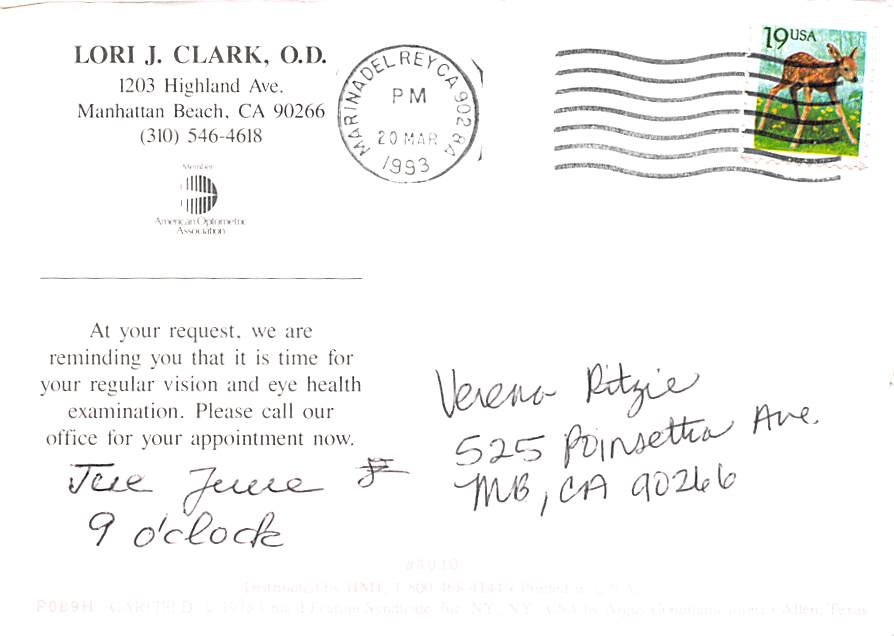 LORI J. CLARK, O.D.
1203 Highland Ave.
Manhattan Beach, CA 90266
(310) 546-4618
Member
American Optometric
Association
MARINA DEL REY CA 90291
PM
20 MAR
1993
19 USA
At your request, we are
reminding you that it is time for
your regular vision and eye health
examination. Please call our
office for your appointment now.
Tue June
9 o'clock
Verena Ritzie
525 Poinsettia Ave.
MB, CA 90266
Distributed by HMI, Printed in U.S.A.
P089H GARFIELD © 1978 United Feature Syndicate, Inc. NY, NY, USA by Argus Communications Allen, Texas